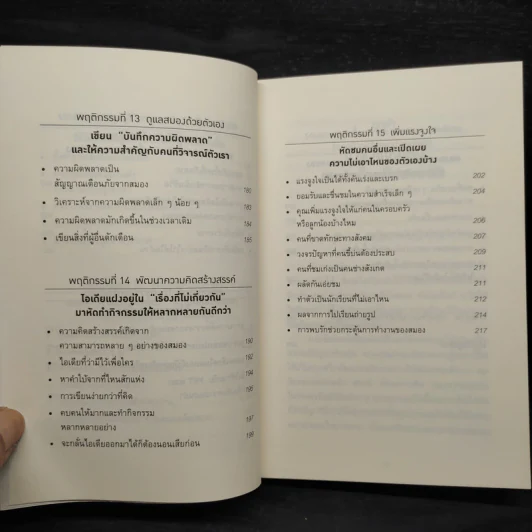 พฤติกรรมที่ 13 ดูแลสมองด้วยตัวเอง
เขียน "บันทึกความผิดพลาด"
และให้ความสำคัญกับคนที่วิจารณ์ตัวเรา
• ความผิดพลาดเป็น
สัญญาณเตือนภัยจากสมอง 180
• วิเคราะห์จากความผิดพลาดเล็ก ๆ น้อย ๆ
• ความผิดพลาดมักเกิดขึ้นในช่วงเวลาเดิม 184
• เขียนสิ่งที่ผู้อื่นตักเตือน 185
พฤติกรรมที่ 14 พัฒนาความคิดสร้างสรรค์
ไอเดียแฝงอยู่ใน "เรื่องที่ไม่เกี่ยวกัน"
มาหัดทำกิจกรรมให้หลากหลายกันดีกว่า
• ความคิดสร้างสรรค์เกิดจาก
ความสามารถหลาย ๆ อย่างของสมอง 190
• ไอเดียที่ว่ามีไว้เพื่อใคร 192
• หาคำใบ้จากที่ไหนสักแห่ง 194
• การเขียนง่ายกว่าที่คิด 195
• คบคนให้มากและทำกิจกรรม
หลากหลายอย่าง 197
• จะกลั่นไอเดียออกมาได้ก็ต้องนอนเสียก่อน
พฤติกรรมที่ 15 เพิ่มแรงจูงใจ
หัดชมคนอื่นและเปิดเผย
ความไม่เอาไหนของตัวเองบ้าง
• แรงจูงใจเป็นได้ทั้งคันเร่งและเบรก 202
• ยอมรับและชื่นชมในความสำเร็จเล็ก ๆ 204
• คุณเพิ่มแรงจูงใจให้แก่คนในครอบครัว
หรือลูกน้องบ้างไหม 206
• คนที่ขาดทักษะทางสังคม 207
• วงจรปัญหาที่คนขี้บ่นต้องประสบ 209
• คนที่ชมเก่งเป็นคนช่างสังเกต 211
• ผลัดกันเอ่ยชม 211
• ทำตัวเป็นนักเรียนที่ไม่เอาไหน 212
• ผลจากการไปเรียนถ่ายรูป 214
• การพบรักช่วยกระตุ้นการทำงานของสมอง 217